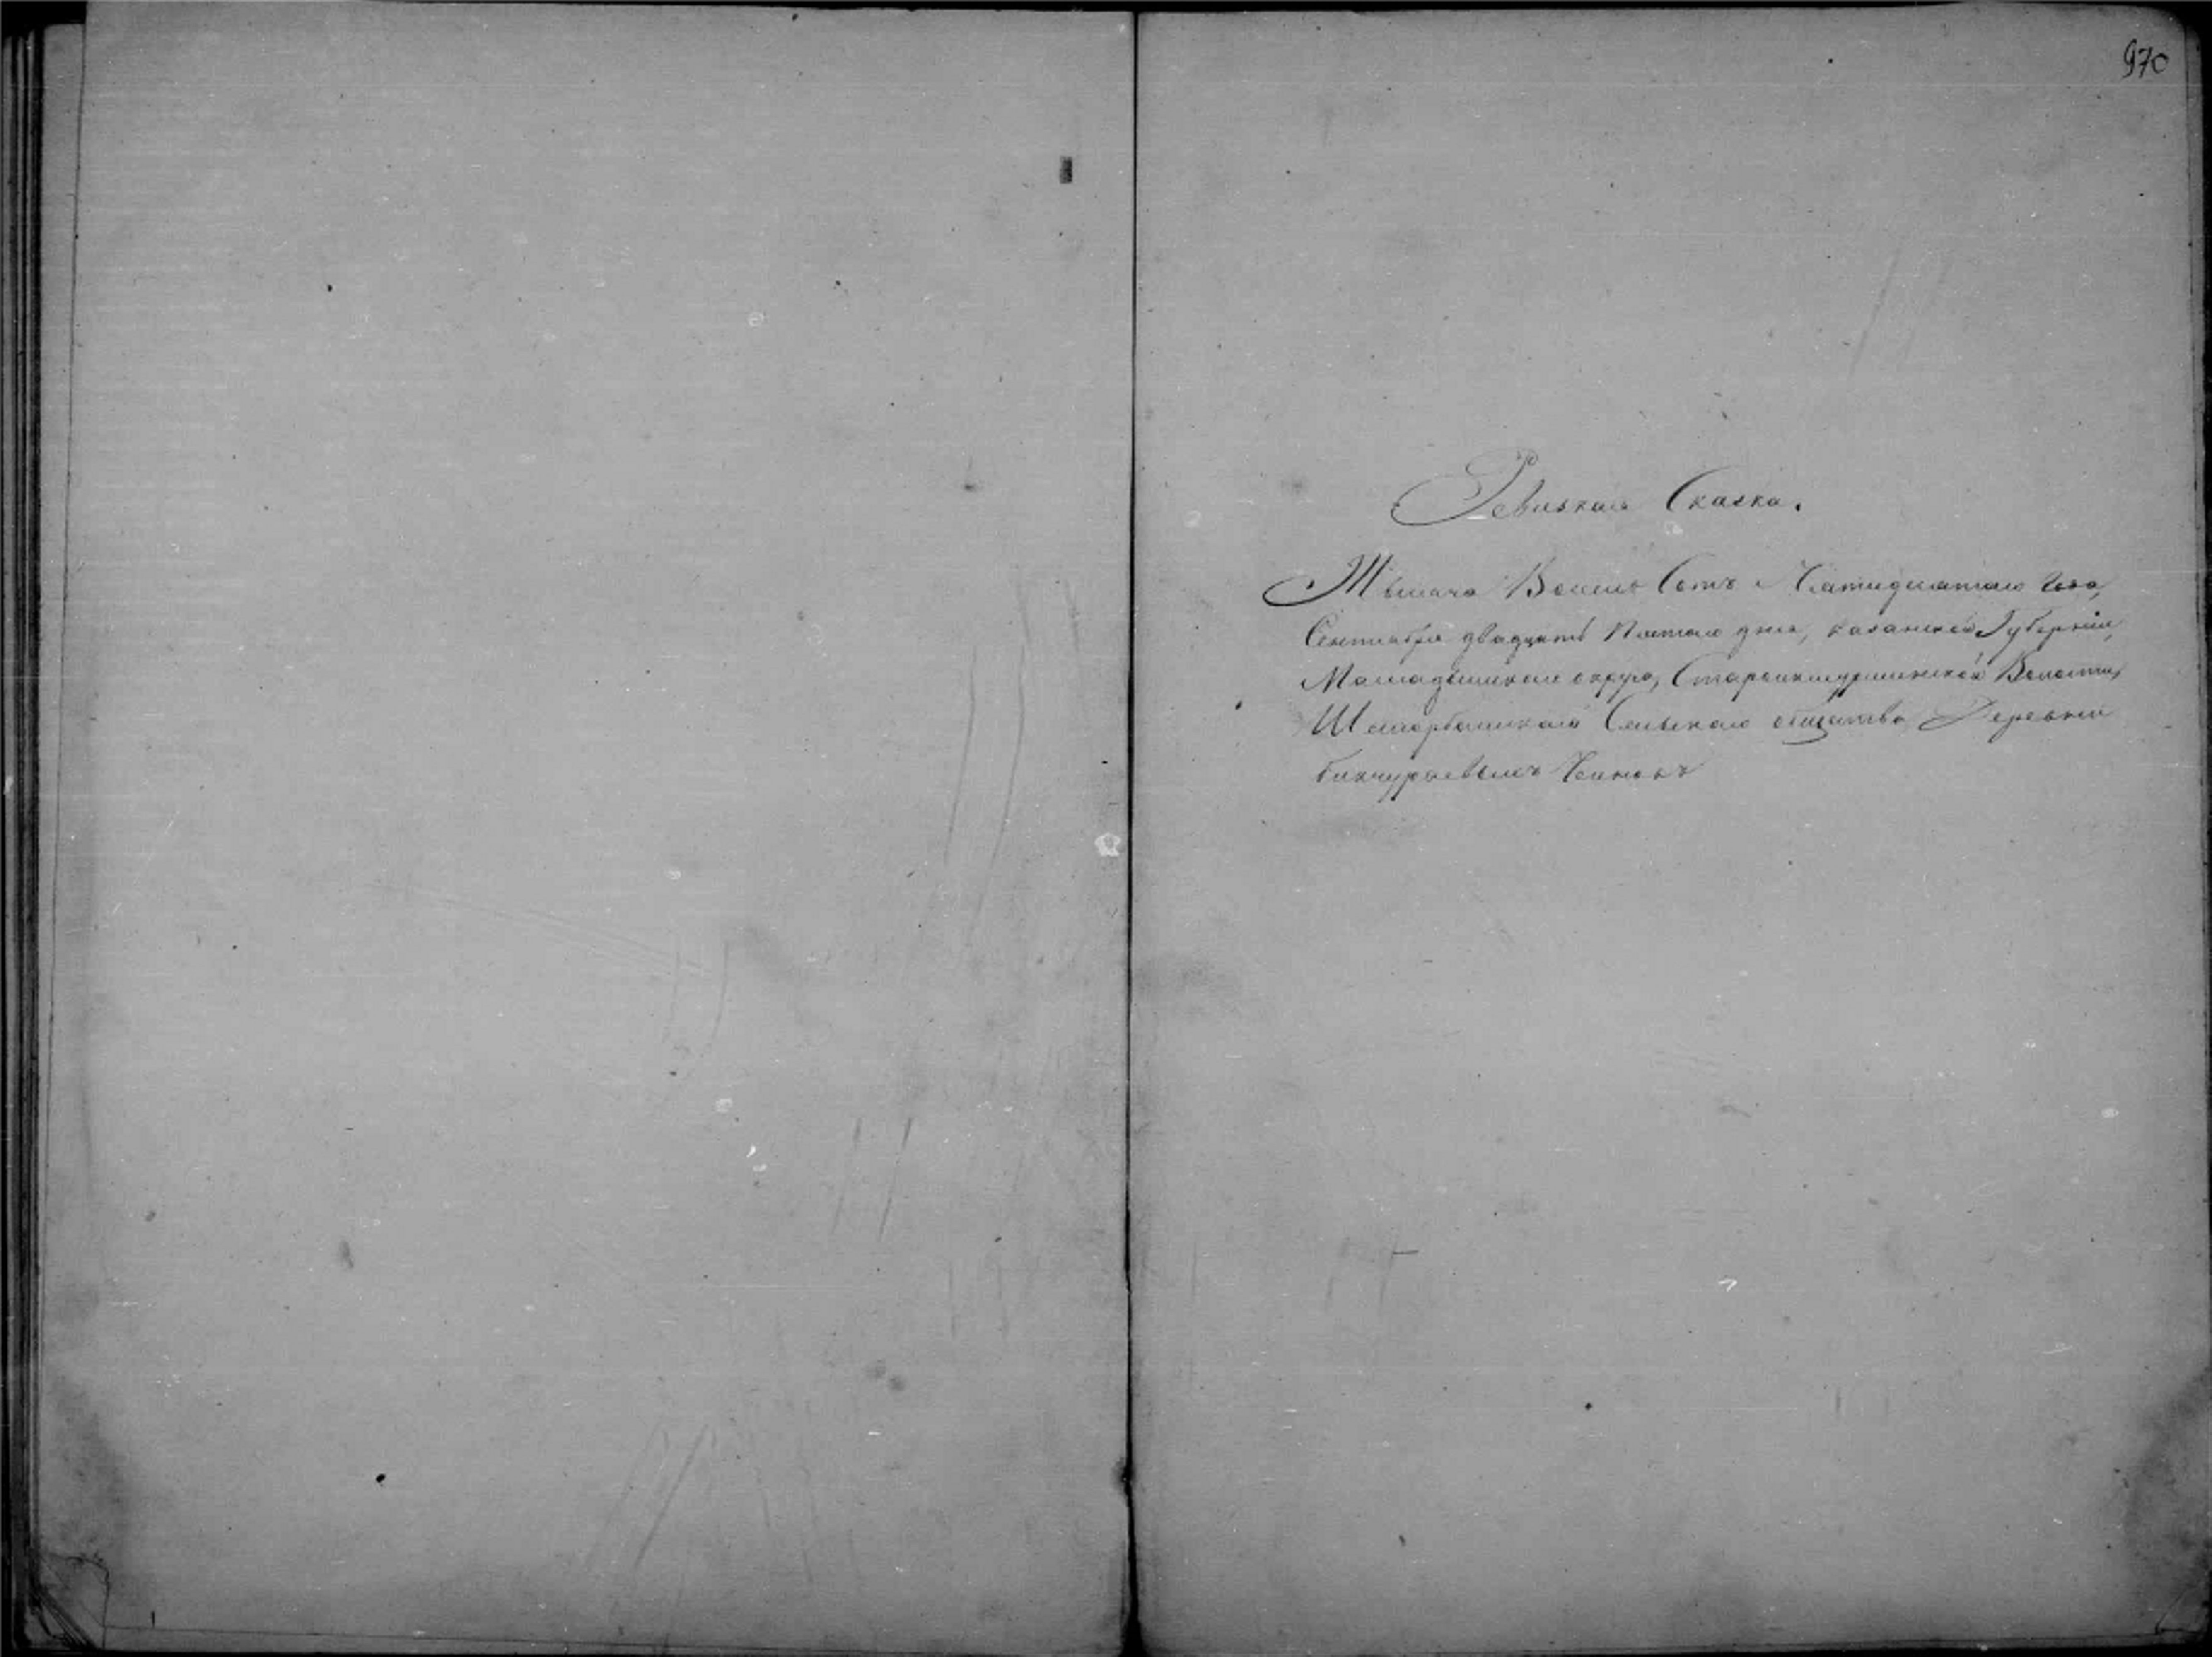 970
Ревизкая Сказка.
Тысяча Восемь Сотъ Пятидесятаго Года,
Сентября двадцать Пятаго дня, казанской Губерніи,
Мамадышскаго округа, Староикшурминской Волости,
Сельскаго общества Деревни